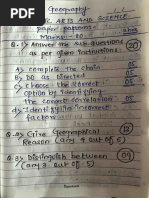 Geography
ARTS AND SCIENCE
paper pattern
Marks:- 80
Q.1) Answer the sub questions
as per given instructions.
20
A) complete the chain 05
B) Do as Directed 05
C) choose the correct
option by Identifying
the correct correlation. 05
D) Identify incorrect
factors. 05
Q.2) Give Geographical
Reason (any 4 out of 6)
12
Q.3) Distinguish between
(any 3 out of 5)
09